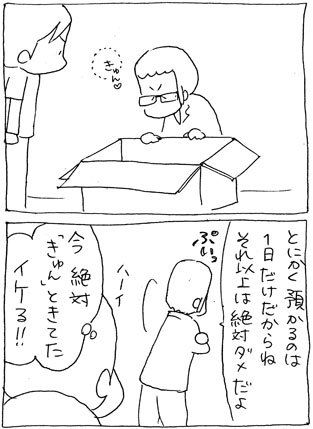 きゅん♡
とにかく預かるのは
1日だけだからね
それ以上は絶対ダメだよ
ぷいっ
ハーイ
今絶対
「きゅん」ときてた
イケる!!